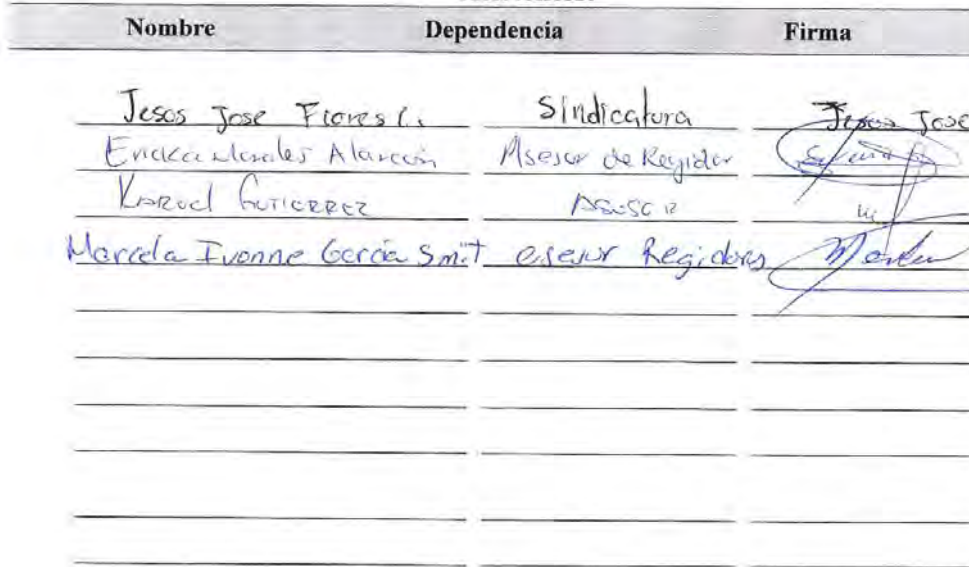 Nombre Dependencia Firma
Jesos Jose Flores C. Sindicatura Jesos Jose
Ericka Morales Alarcón Asesor de Regidor
Karod Gutierrez Asesor
Marcela Ivonne García Smit asesor Regidores